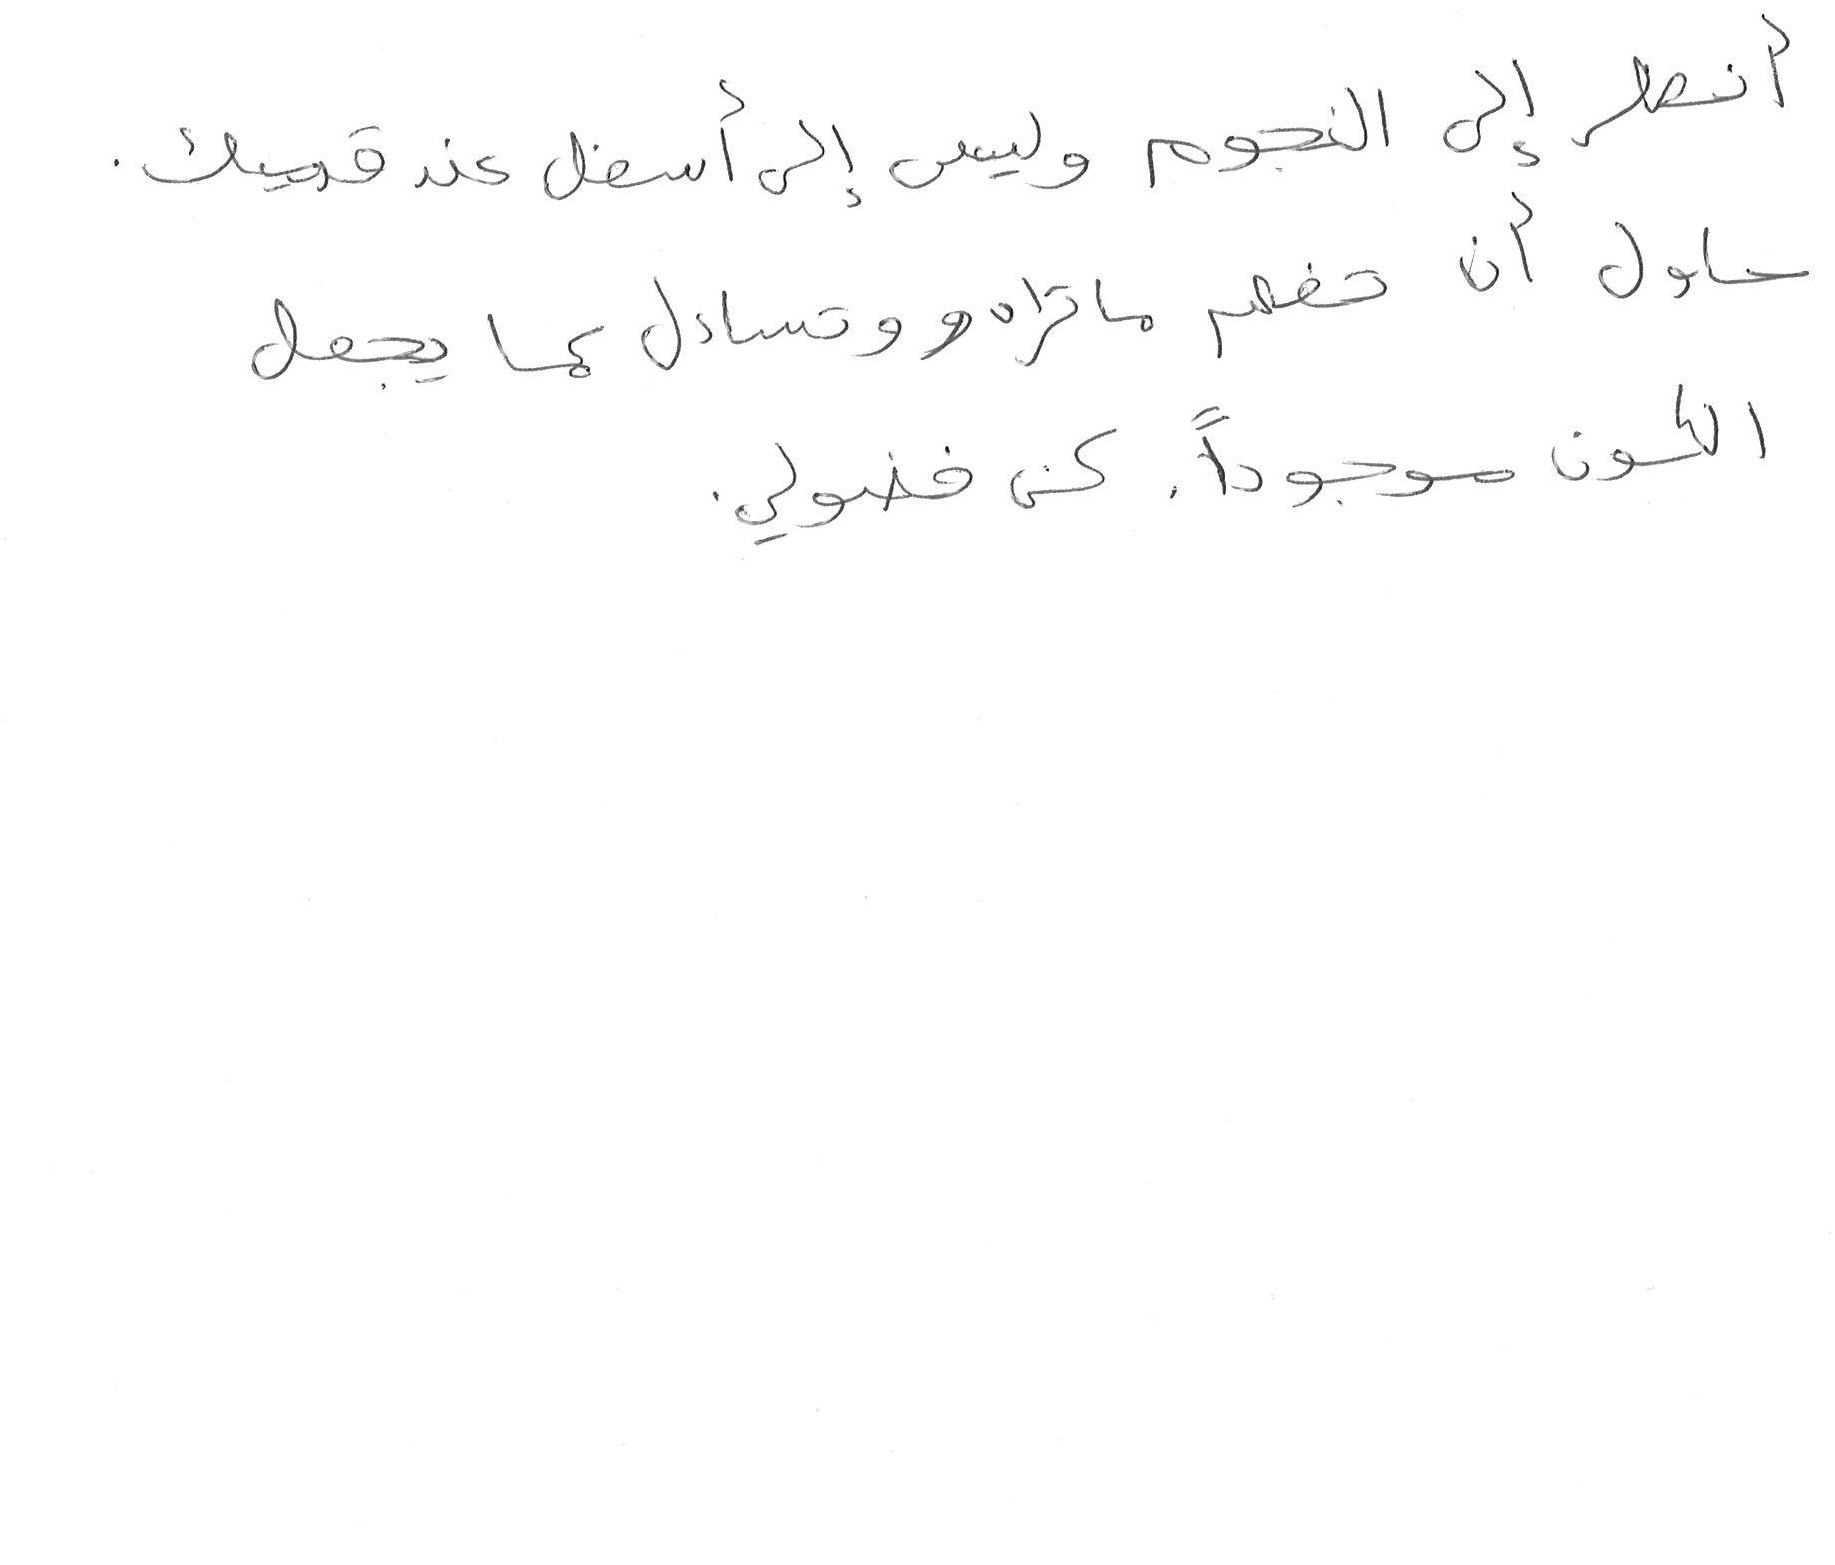 أنظر إلى النجوم وليس إلى أسفل عند قدميك.
حاول أن تفهم ما تراه وتساءل بما يجعل
الكون موجوداً. كن فضولي.